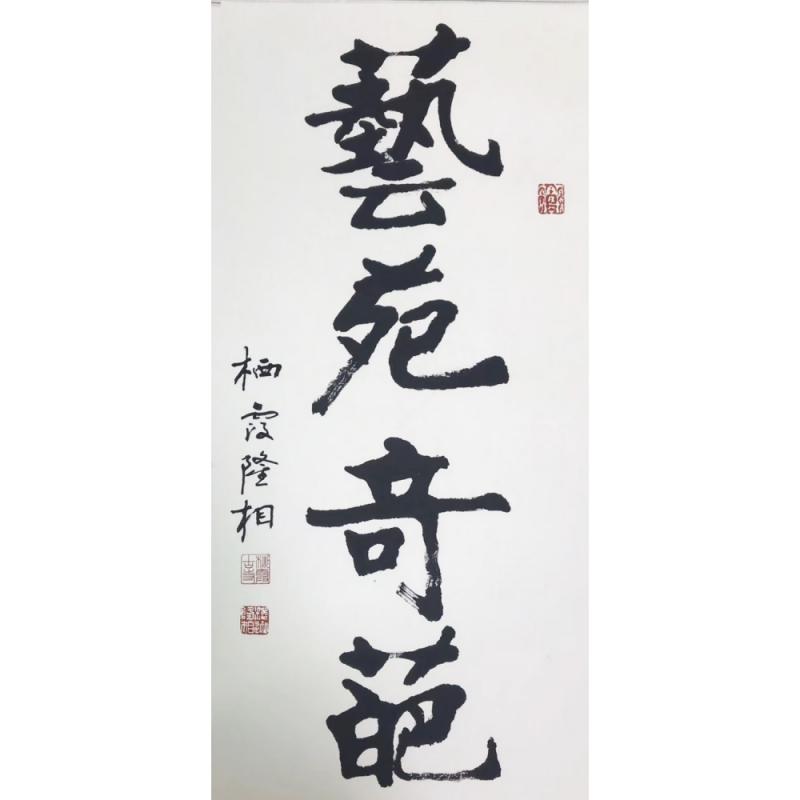 藝苑奇葩
栖霞隆相